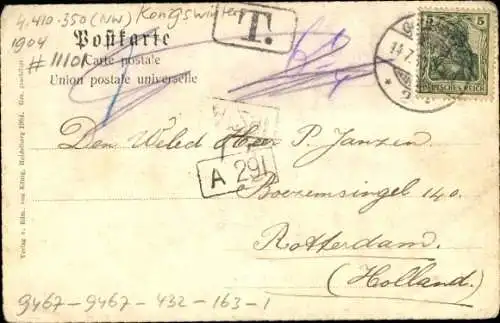 4.410-350 (NW) Königswinter
1904
#11101
T.
Postkarte
Carte postale
Union postale universelle
5
DEUTSCHES REICH
14.7.
A 291
Den Weled Heer P. Janzen.
Boezemsingel 140.
Rotterdam.
(Holland.)
Verlag v. Edm. von König, Heidelberg 1904.
9467-9467-432-163-1